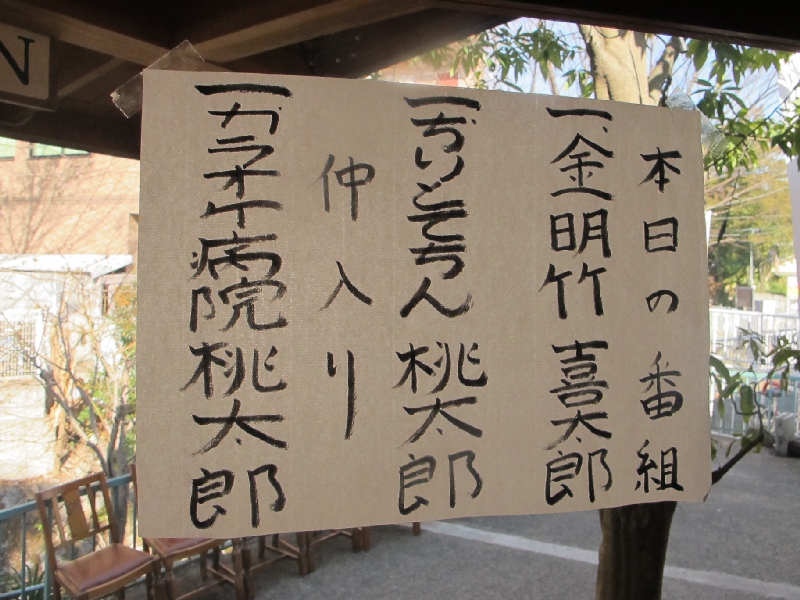 本日の番組
一、金明竹 喜太郎
一、ぢりとてちん 桃太郎
仲入り
一、カラオケ病院 桃太郎
N